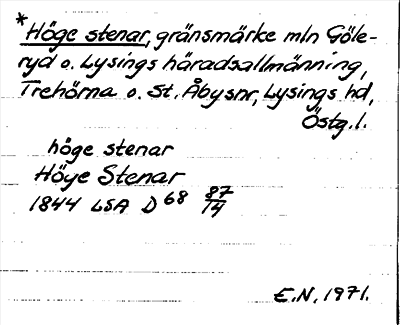 * Höge stenar, gränsmärke mln Göle-
ryd o. Lysings häradsallmänning,
Trehörna o. St. Åbysnr, Lysings hd,
Östg.l.
höge stenar
Höye Stenar
1844 LSA D 68 87/14
E.N, 1971.